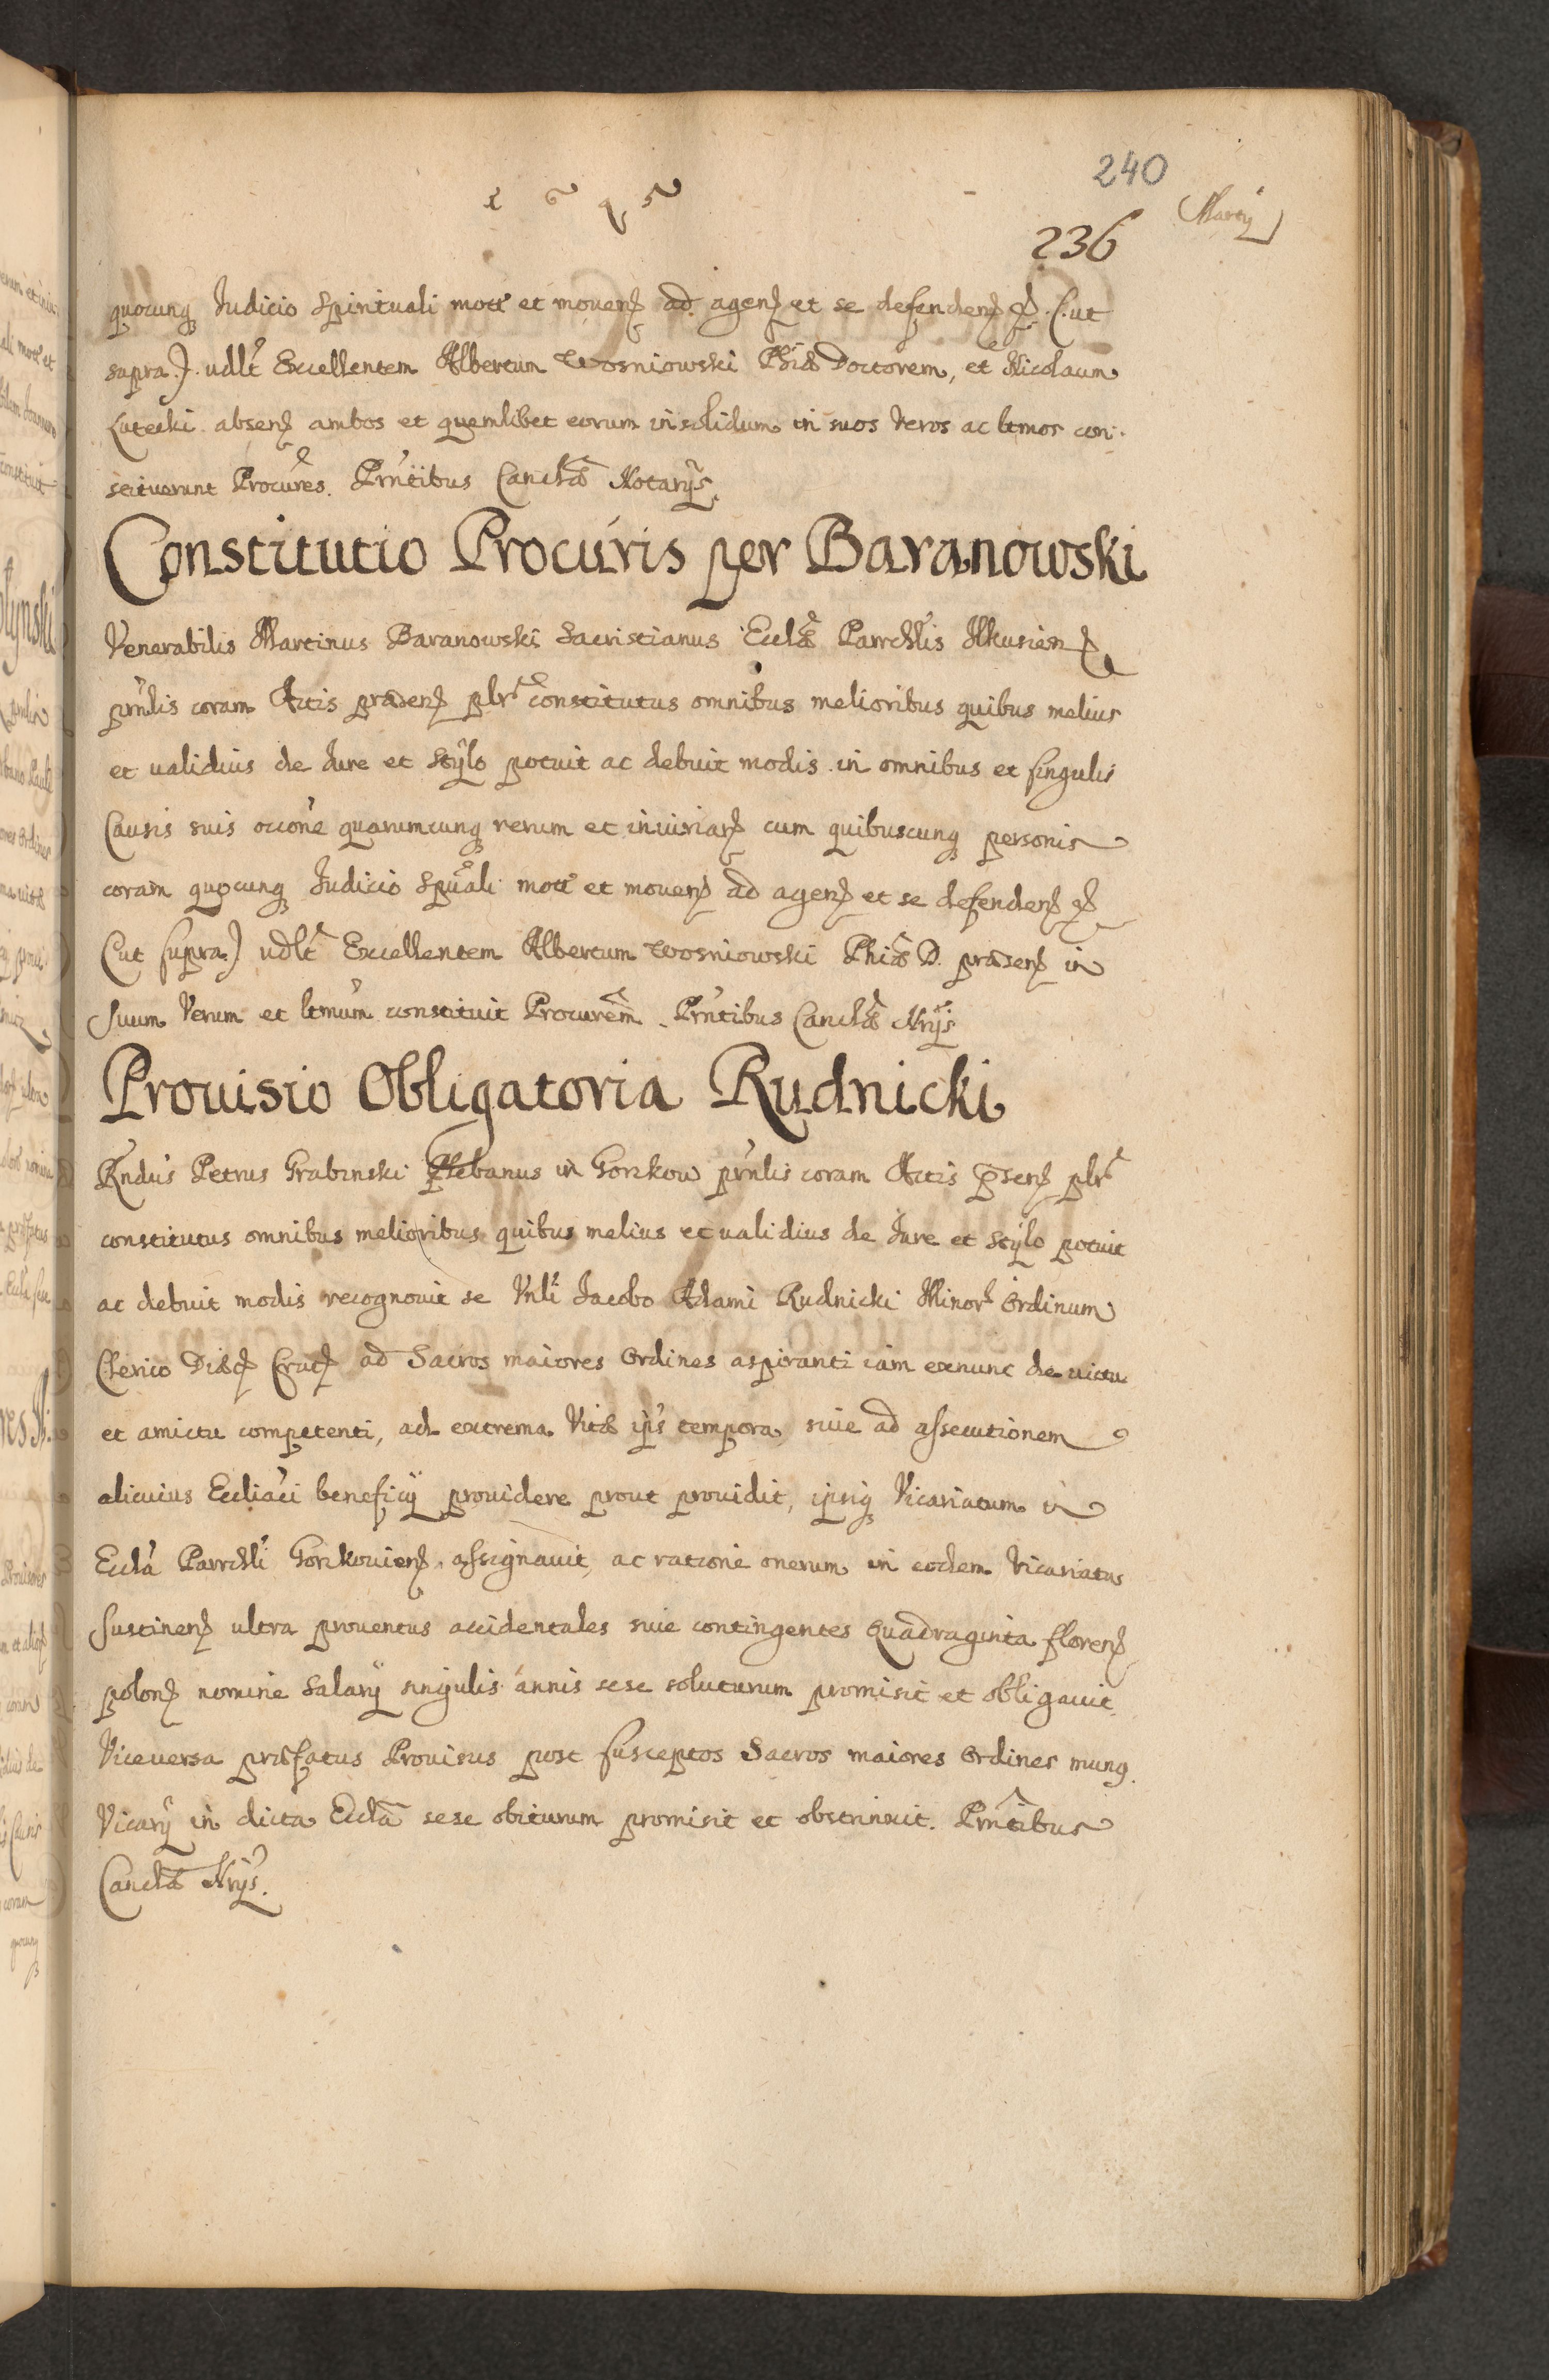 240
1695
Martij
236
quocunq Iudicio Spirituali mott et mouenđ ad agenđ et se defendenđ (:ut
supra:) vdlt Excellentem Albertum Wosniowski Phiæ Doctorem, et Nicolaum
Lutecki absenđ ambos et quemlibet eorum in solidum in suos Veros ac ltmos con-
stituerunt Procures. Prntibus Canclæ Notarijs.
Constitutio Procuris per Baranowski
Venerabilis Martinus Baranowski Sacristianus Ecclæ Parrchlis Ilkusien
prnlis coram Actis præsenđ plr constitutus omnibus melioribus quibus melius
et validius de Iure et Stylo potuit ac debuit modis in omnibus et singulis
Causis suis occone quarumcunq rerum et iniuriarđ cum quibuscunq personis
coram quocunq Iudicio Spuali mott et mouenđ ad agenđ et se defendenđ
(ut supra) vdlt Excellentem Albertum Wosniowski Phiæ D. præsenđ in
suum Verum et ltmum constituit Procurem. Prntibus Canclæ Nrijs
Prouisio Obligatoria Rudnicki
Rndus Petrus Grabinski Plebanus in Gorzkow prnlis coram Actis psenđ plr
constitutus omnibus melioribus quibus melius et validius de Iure et Stylo potuit
ac debuit modis recognouit se Vnli Iacobo Adami Rudnicki Minor Ordinum
Clerico Diæc Crac ad Sacros maiores Ordines aspiranti iam exnunc de victu
et amictu competenti, ad extrema Vitæ ips tempora siue ad assecutionem
alicuius Eccliaci beneficij prouidere prout prouidit, ipsiq Vicariatum in
Eccla Parrchli Gorzkouienđ assignauit, ac ratione onerum in eodem Vicariatus
sustinenđ ultra prouentus accidentales siue contingentes Quadraginta florenđ
polonđ nomine Salarij singulis annis sese soluturum promisit et obligauit
Viceversa præfatus Prouisus post susceptos Sacros maiores Ordines munq.
Vicarij in dicta Eccla sese obiturum promisit et obstrinxit. Prntibus
Canclæ Nrijs.